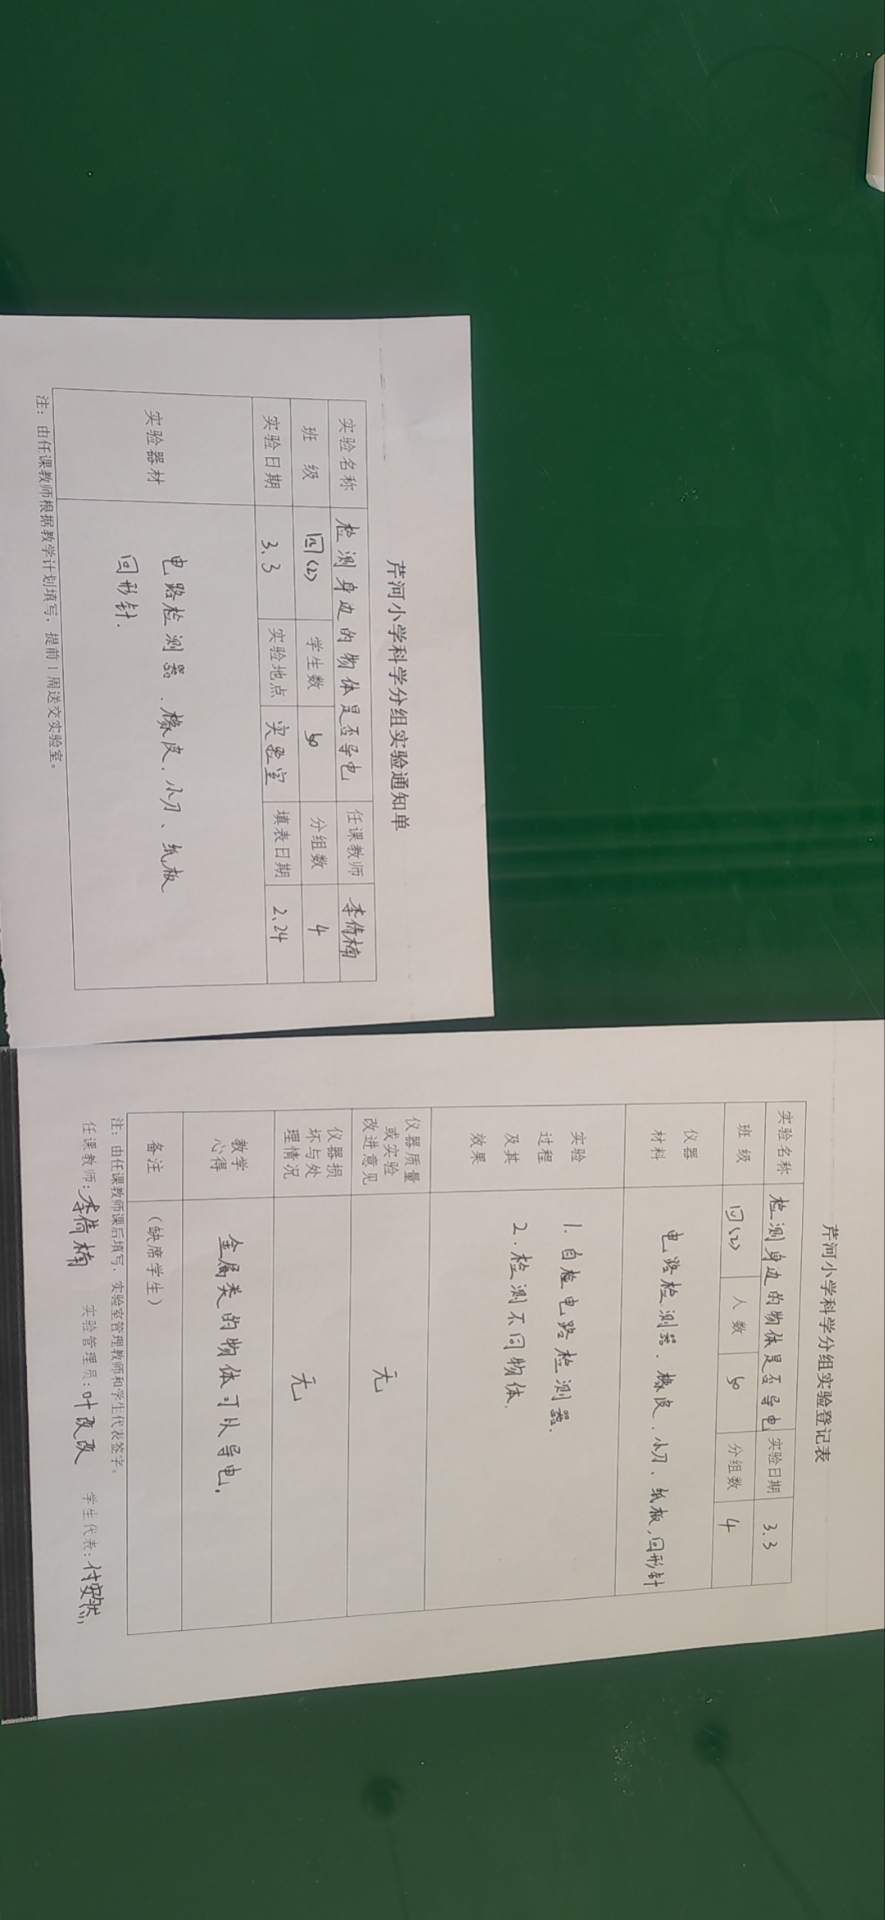 芹河小学科学分组实验通知单
实验名称 检测身边的物体是否导电 任课教师 李倩楠
班 级 四(2) 学生数 50 分组数 4
实验日期 3.3 实验地点 实验室 填表日期 2.24
实验器材 电路检测器、橡皮、小刀、纸板
回形针.
注：由任课教师根据教学计划填写，提前1周送交实验室。
芹河小学科学分组实验登记表
实验名称 检测身边的物体是否导电 实验日期 3.3
班 级 四(2) 人 数 50 分组数 4
仪器
材料
电路检测器、橡皮、小刀、纸板,回形针
实验
过程
及其
效果
1. 自检电路检测器.
2. 检测不同物体.
仪器质量
或实验
改进意见
无
仪器损
坏与处
理情况
无
教学
心得
金属类的物体可以导电.
备注 (缺席学生)
注：由任课教师课后填写，实验室管理教师和学生代表签字。
任课教师:李倩楠 实验管理员:叶改改 学生代表:付